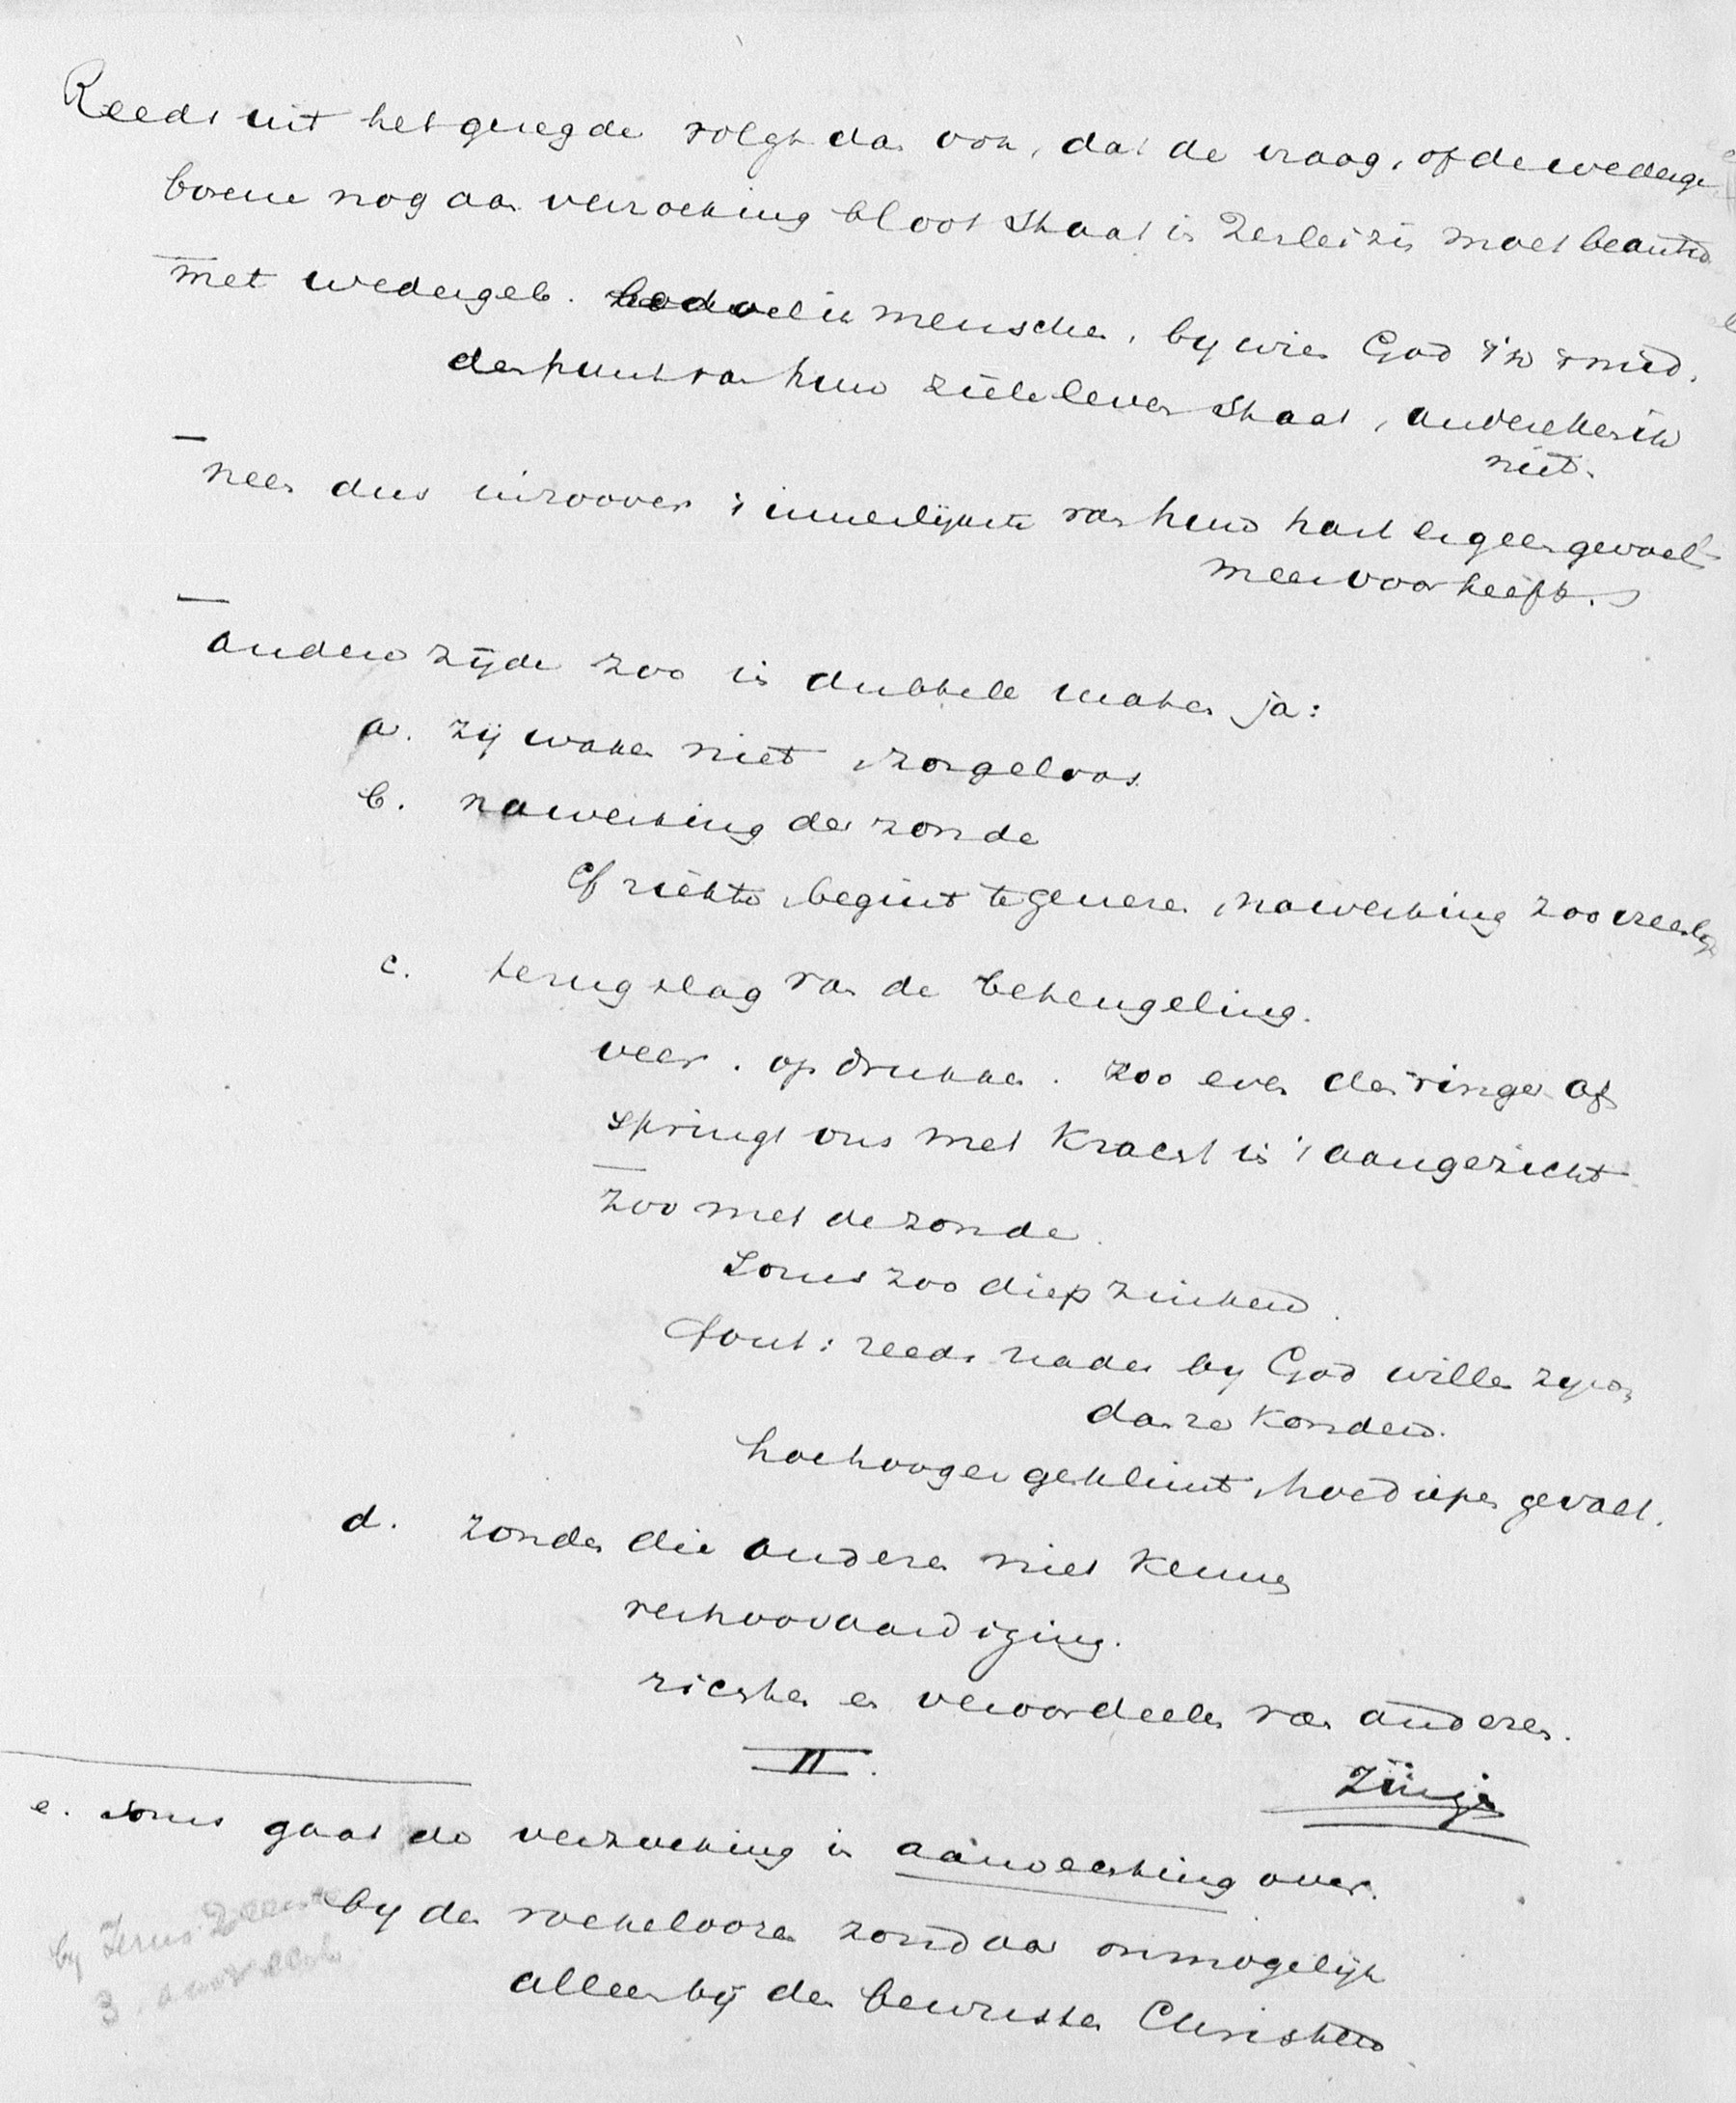 Reeds uit het gezegde volgt dan ook, dat de vraag, of de wederge
borene nog aan verzoeking bloot staat in 2erlei zin moet beantw.
met wedergeb. bedoel ik menschen, by wien God in 't mid.
denpunt van hun zieleleven staat, anders ken ik
niet.
neen dus inzoover 't innerlijkste van hun hart er geen gevaar
meer voor heeft.
andere zijde zoo in dubbele mate ja:
a. zij waken niet, zorgeloos.
b. nawerking der zonde
Cf ziekte, begint te genezen, nawerking zoo vreeslijk
c. terugslag van de beteugeling.
veer. opdrukken. zoo even den vinger af
springt ons met kracht in 't aangezicht
zoo met de zonde.
Soms zoo diep zinken.
fout: reeds nader by God willen zijn
dan ze konden.
hoe hooger geklimt, hoe dieper gevall.
d. zonden die anderen niet kennen
verhoovaardiging.
richten en veroordeelen van anderen.
II.
e. soms gaat de verzoeking in aanvechting over.
by den roekeloozen zondaar onmogelijk
alleen bij den bewusten Christen
by Jezus
3